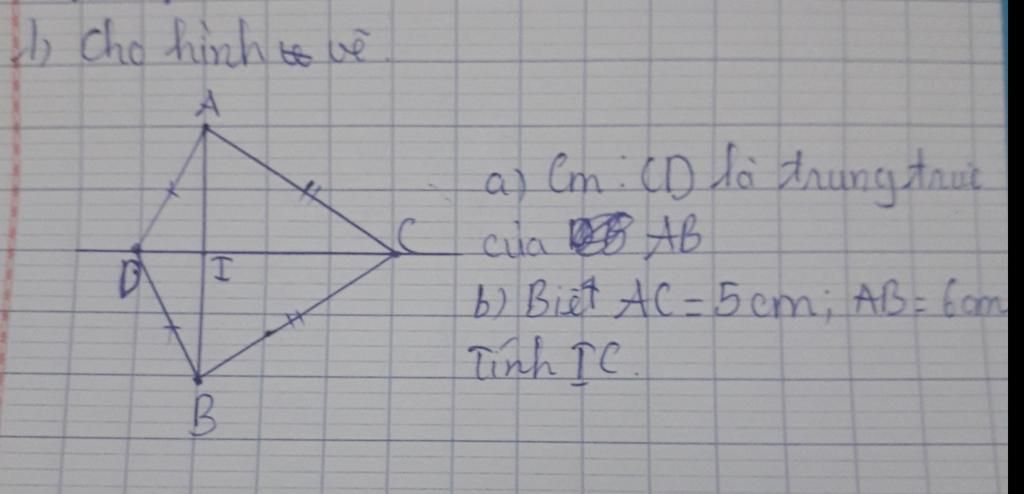 1) Cho hình vẽ.
A
a) Cm: CD là trung trực
C
của AB
D
I
b) Biết AC = 5cm; AB = 6cm
Tính IC.
B